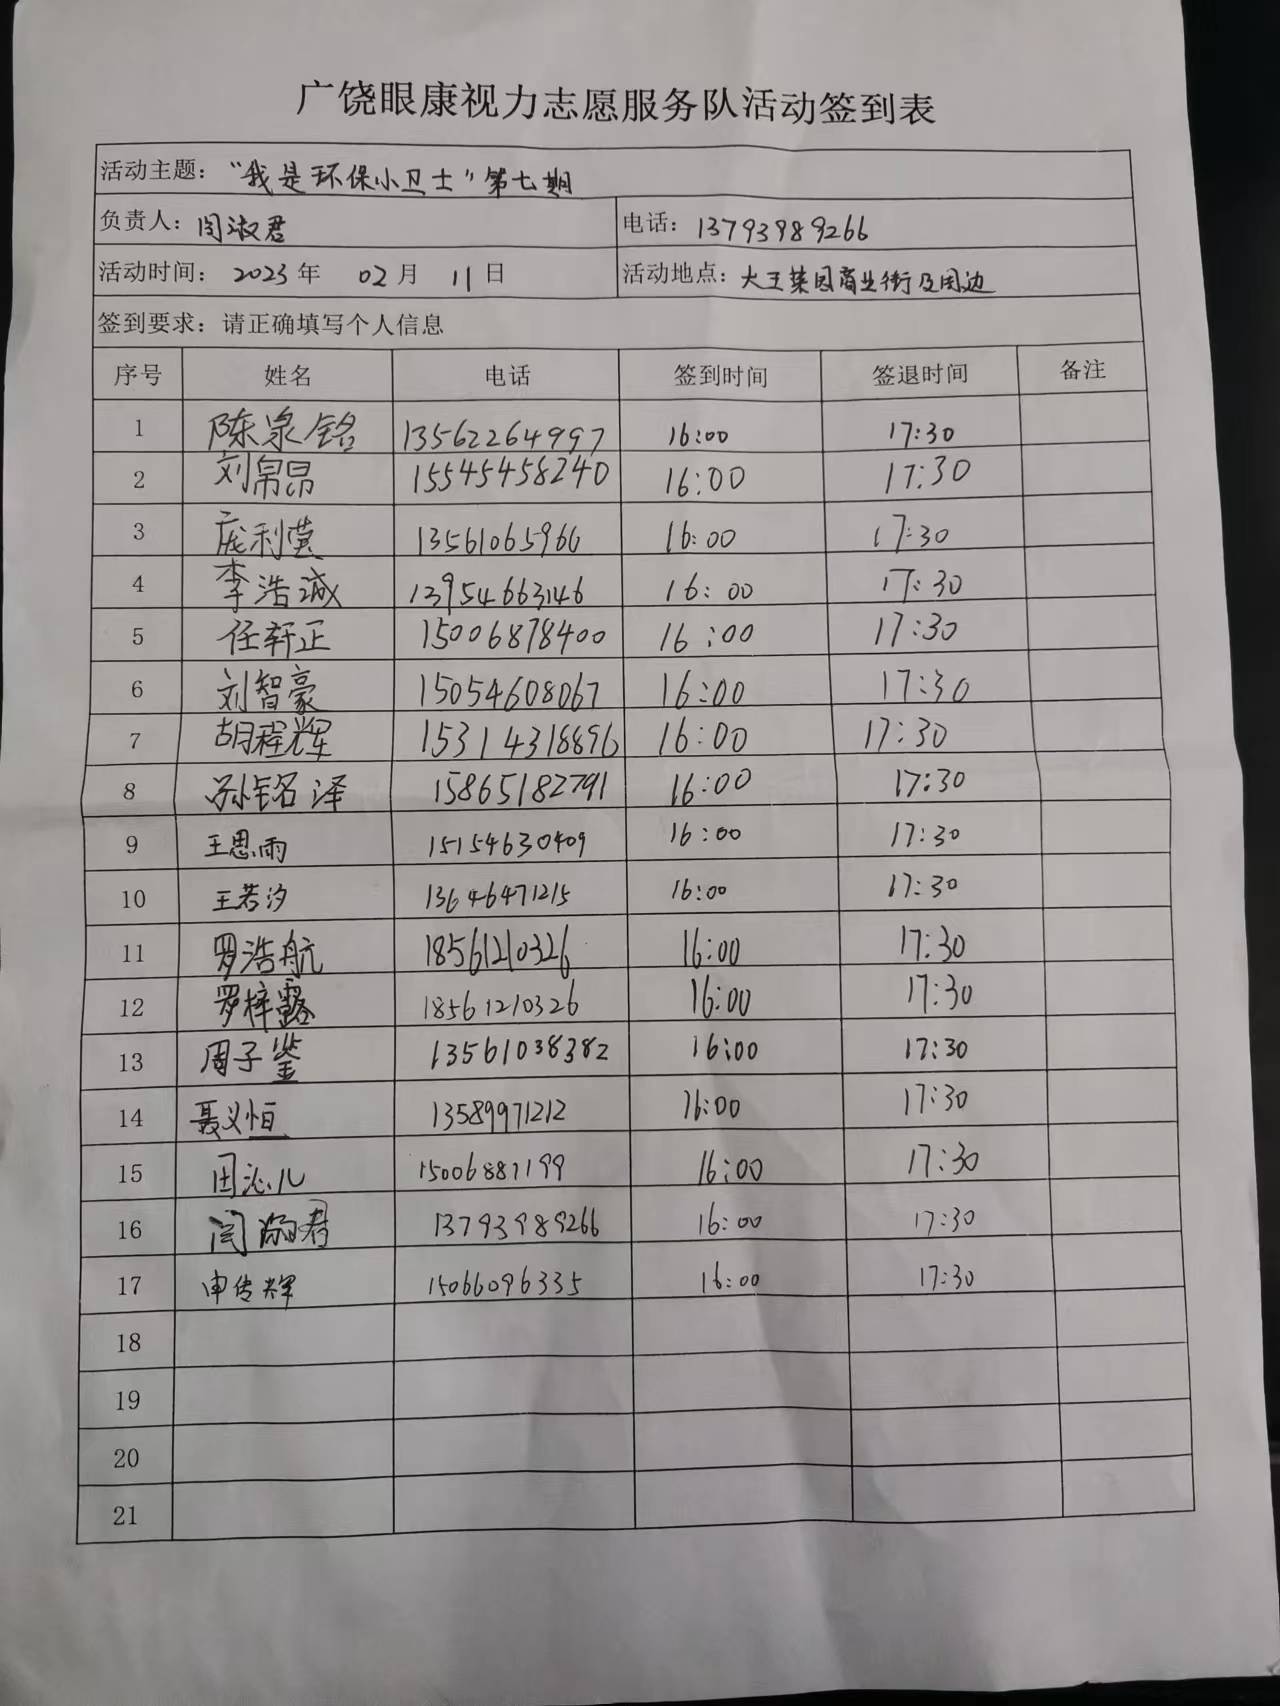 广饶眼康视力志愿服务队活动签到表
活动主题："我是环保小卫士"第七期
负责人：闫淑君 电话：13793989266
活动时间：2023年 02月 11日 活动地点：大王菜园商业街及周边
签到要求：请正确填写个人信息
序号 姓名 电话 签到时间 签退时间 备注
1 陈泉铭 13562264997 16:00 17:30
2 刘帛昂 15545458240 16:00 17:30
3 庞利萱 13561065966 16:00 17:30
4 李浩诚 13954663146 16:00 17:30
5 任轩正 15006878400 16:00 17:30
6 刘智豪 15054608067 16:00 17:30
7 胡程辉 15314318896 16:00 17:30
8 孙铭泽 15865182791 16:00 17:30
9 王思雨 15154630409 16:00 17:30
10 王若汐 13646471215 16:00 17:30
11 罗浩航 18561210326 16:00 17:30
12 罗梓露 18561210326 16:00 17:30
13 周子鉴 13561038382 16:00 17:30
14 聂义恒 13589971212 16:00 17:30
15 田沁儿 15006887199 16:00 17:30
16 闫淑君 13793989266 16:00 17:30
17 申传辉 15066096335 16:00 17:30
18
19
20
21